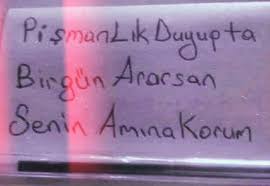 PişmanLık Duyupta
Birgün Ararsan
Senin AmınaKorum